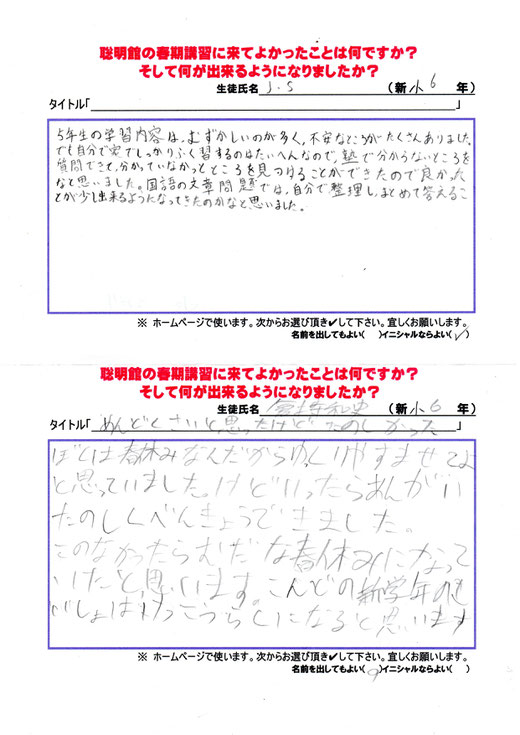 聡明館の春期講習に来てよかったことは何ですか?
そして何が出来るようになりましたか?
生徒氏名 J.S (新小6年)
タイトル「 」
5年生の学習内容は、むずかしいのが多く、不安なところがたくさんありました。
でも自分で家でしっかりふく習するのはたいへんなので、塾で分からないところを
質問できて、分かっていなかっとところを見つけることができたので良かった
なと思いました。国語の文章問題では、自分で整理し、まとめて答えるこ
とが少し出来るようになってきたのかなと思いました。
※ ホームページで使います。次からお選び頂き✔して下さい。宜しくお願いします。
名前を出してもよい( )イニシャルならよい(✓)
聡明館の春期講習に来てよかったことは何ですか?
そして何が出来るようになりましたか?
生徒氏名 (新小6年)
タイトル「めんどくさいと思ったけどたのしかった」
ぼくは春休みなんだからゆっくりやすませてよ
と思っていました。けどいったらあんがい
たのしくべんきょうできました。
このなかったらむだな春休みになって
いけたと思います。こんどの新学年の
しょはけっこうらくになると思います
※ ホームページで使います。次からお選び頂き✔して下さい。宜しくお願いします。
名前を出してもよい( )イニシャルならよい( )